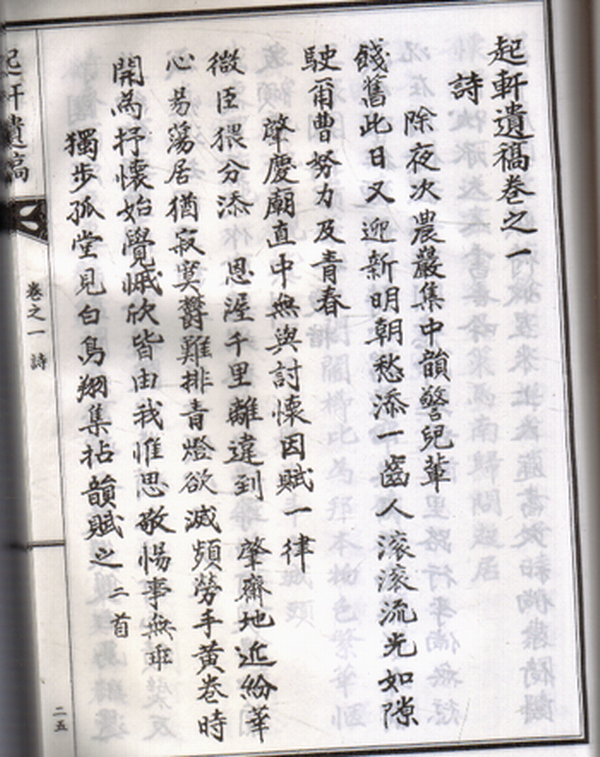 起軒遺稿卷之一
詩
除夜次農巖集中韻警兒輩
餞舊此日又迎新明朝愁添一齒人滚滚流光如隙
駛爾曹努力及青春
肇慶廟直中無與討懷因賦一律
微臣猥分添 恩渥千里離違到 肇齋地近紛華
心易蕩居猶寂寞鬱難排青燈欲滅頻勞手黄卷時
開為抒懷始覺慽欣皆由我惟思敬惕事無乖
獨步孤堂見白鳥翔集拈韻賦之二首
起軒遺稿
卷之一 詩
二五